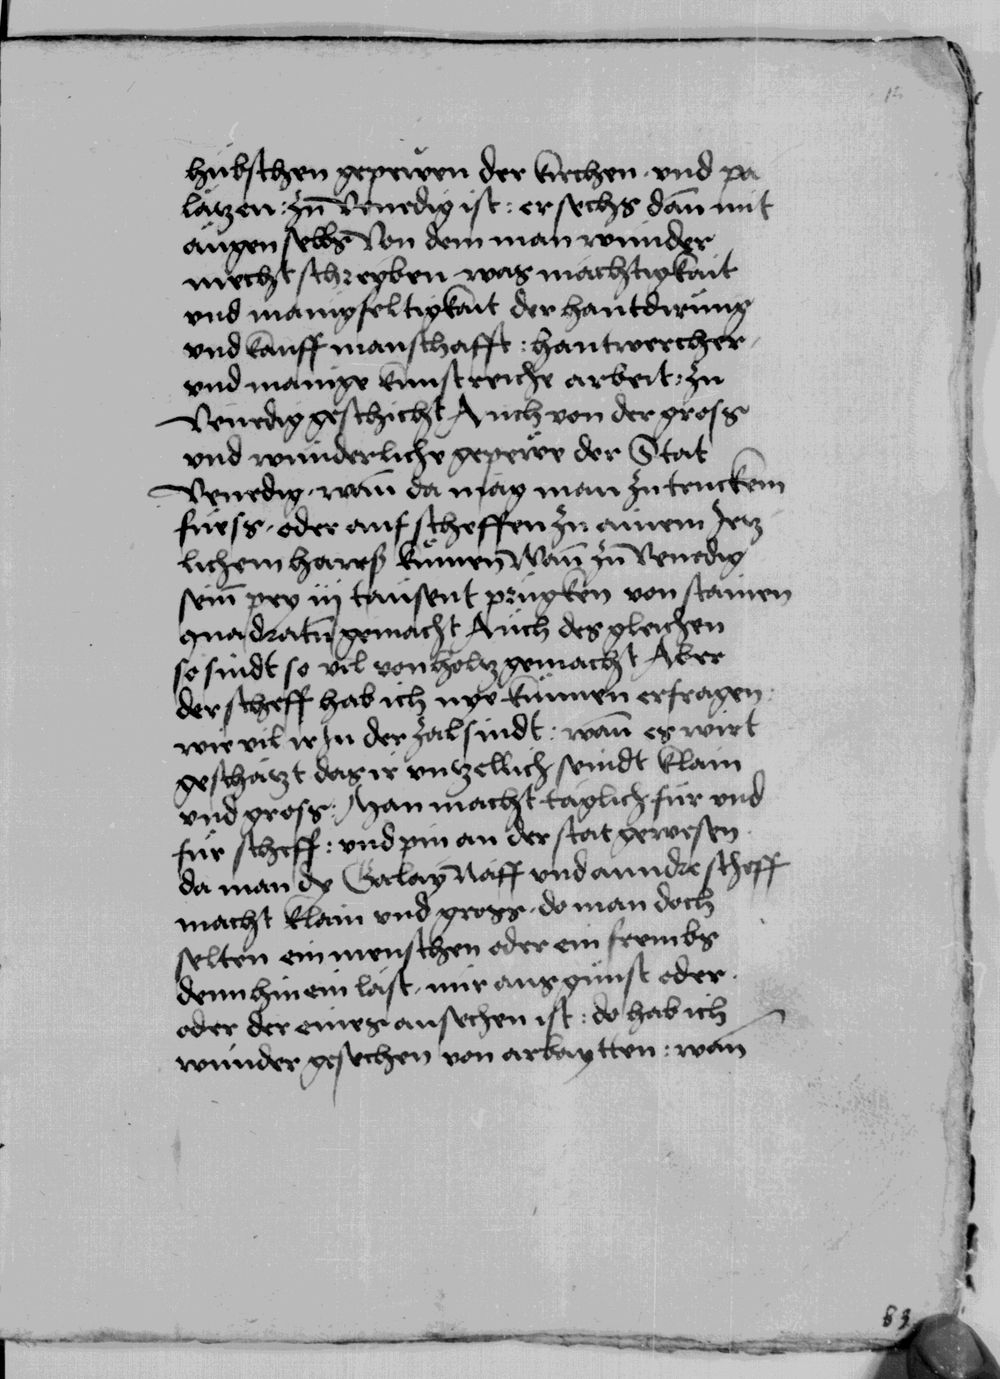 hübschen gepewen der kirchen · vnd pa
lätzen : zu Venedig ist : er sechs dan̄ mit
augen selbs Von dem man wunder
mecht schreyben was mächtigkait
vnd manigfeltigkait der hantdirung
vnd kauffmanschafft : hantwercher
vnd manige kunstreiche arbeit : zu
Venedig geschicht Auch von der gross
vnd wunderliche gepewe der Stat
Venedig · wan̄ da mag man zu trucknem
fuess · oder auf scheffen zu ainem yetz
lichem hawss kumen Wan̄ zu Venedig
sein pey iij tausent prugken von stainen
quadratn̄ gemacht Auch des gleichen
so sindt so vil von holtz gemacht Aber
der scheff hab ich nye kunnen erfragen
wie vil ir in der zal sindt : wan̄ es wirt
geschätzt das ir vntzellich seindt klain
vnd gross : Man macht täglich für vnd
für scheff : vnd pin an der stat gewesen
da man dy Galay Naff vnd anndre scheff
macht klain vnd gross · do man doch
selten ein menschen oder ein frembs
denn hinein läst · nur aus gunst oder ·
oder der eines ansechen ist : do hab ich
wunder gesechen von arbaytten : wan
83